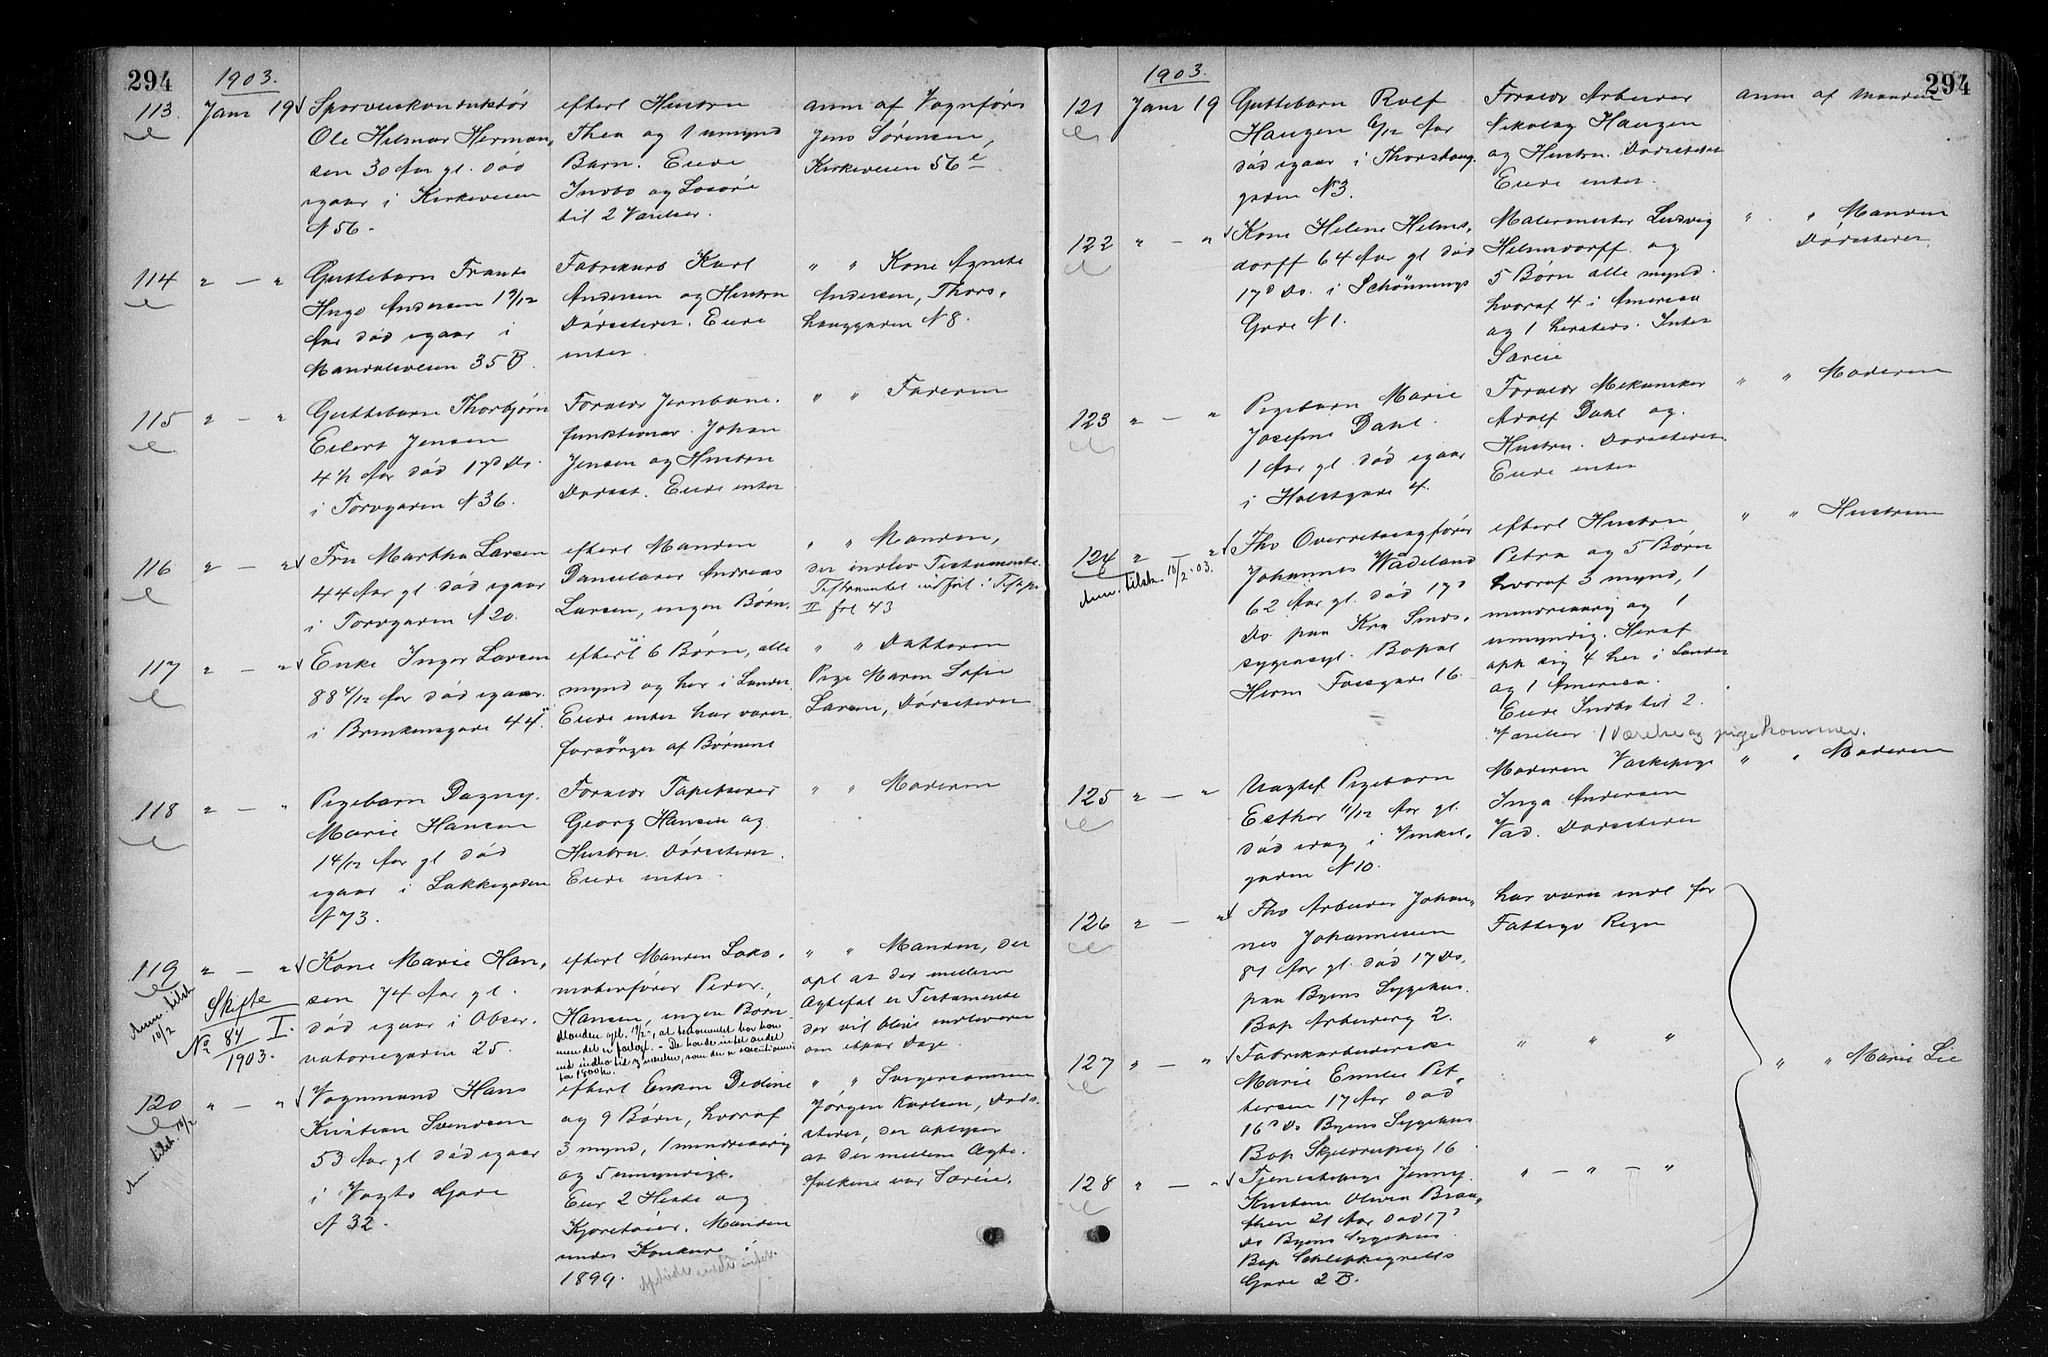 294
1903.
113
Janr 19
Sporveiskonduktør
Ole Hilmar Herman,
sen 30 Aar gl. død
igaar i Kirkeveien
N 56.
efterl Hustru
Thea og 1 umynd
Barn. Eiede
Indbo og Løsøre
til 2 Værelser.
anm af Vognfører
Jens Sørensen,
Kirkeveien 56
114
" — "
Guttebarn Frants
Hugo Andersen 1 9/12
Aar død igaar i
35 B.
Fabrikarb Karl
Andersen og Hustru
Dødsstedet. Eiede
intet.
" " Kone Agnete
Andersen, Thors,
houggaden N 8.
115
" — "
Guttebarn Thorbjørn
Eilert Jensen
4 1/2 Aar død 17d Ds.
i Torvgaden N 36.
Forældr Jernbane,
funktionær Johan
Jensen og Hustru
Dødsst. Eiede intet
" " Faderen
116
" — "
Fru Martha Larsen
44 Aar gl død igaar
i Torvgaden N 20.
efterl Manden
Danselærer Andreas
Larsen, ingen Børn.
" " Manden,
der indlev Testamente.
Testamentet indført i
II fol 43
117
" — "
Enke Inger Larsen
88 4/12 Aar død igaar
i Brinkensgade 44
efterl 6 Børn, alle
mynd og her i Landet.
Eiede intet har været
forsørget af Børnene
" " Datteren
Pige Maren Sofie
Larsen, Dødsstedet
118
" — "
Pigebarn Dagny
Marie Hansen
14/12 Aar gl død
igaar i Lakkegaden
N 73.
Forældr Tapetserer
Georg Hansen og
Hustru. Dødsstedet.
Eiede intet.
" " Moderen
119
" — "
Anm. tilst.
10/2
Skifte
No 84 I.
1903.
Kone Marie Han,
sen 74 Aar gl.
død igaar i Obser,
vatoriegaden 25.
efterl Manden Loko,
motivfører Peder
Hansen, ingen Børn
Manden opl. , at testamentet har han
men det er forlagt. - De havde intet andet
end indbo
1800 kr.
" " Manden, der
opl at der mellem
Ægtefol er Testamente
der vil blive indleveret
om etpar Dage.
120
" — "
Anm. tilst. 10/2
Vognmand Hans
Kristian Svendsen
53 Aar gl død igaar
i Vogts Gade
N 32.
efterl Enken
og 9 Børn, hvoraf
3 mynd, 1 mindreaarig
og 5 umyndige.
Eier 2 Heste og
Kjøretøier. Manden
under Konkurs i
1899.
" " Svigersønnen
Jørgen Karlsen, Døds,
stedet, der oplyser
at der mellem Ægte,
folkene var Særeie.
294
1903.
121
Janr 19
Guttebarn Rolf
Haugen 6/12 Aar
død igaar i Thorshoug,
gaden N 3.
Forældr Arbeider
Nikolay Haugen
og Hustru. Dødsstedet
Eiede intet.
anm af Manden
122
" — "
Kone Helene Helms,
dorff 64 Aar gl død
17d Ds. i Schønnings
Gade N 1.
Malermester Ludvig
Helmsdorff og
5 Børn alle mynd.
hvoraf 4 i Amerika
og 1 hersteds. Intet
Særeie
" " Manden
Dødsstedet
123
" — "
Pigebarn Marie
Josefine Dahl
1 Aar gl. død igaar
i Holstgade 4.
Forældr Mekaniker
Adolf Dahl og
Hustru. Dødsstedet
Eiede intet
" " Moderen
124
" "
Anm. tilst. 10/2-03.
Fhv Overretssagfører
Johannes Wådeland
62 Aar gl. død 17d
Ds paa Kra Sinds,
sygeasyl. Bopal
Herm Fossgade 16.
efterl Hustru
Petra og 5 Børn
hvoraf 3 mynd, 1
mindreaarig og 1
umyndig. Heraf
oph sig 4 her i Landet
og 1 Amerika.
Eiede Indbo til 2
Værelser 1 Værelse og pigekammer.
" " Hustruen
125
" — "
Uægtef Pigebarn
Esther 11/12 Aar gl.
død idag i Vinkel,
gaden N 10.
Moderen Vaskepige
Inga Andersen
Vad. Dødsstedet
" " Moderen
126
" — "
Fhv Arbeider Johan,
nes Johannesen
81 Aar gl. død 17 Ds.
paa Byens Sygehus.
Bop Arbeiderg 2.
har været indl for
Fattigv Regn
127
" — "
Fabrikarbeiderske
Marie Emilie Pet,
tersen 17 Aar død
16d Ds Byens Sygehus
Bop 16
" " "
" " Marie Lie
128
" — "
Tjenestepige Jenny
Kristine Olivia Braa,
then 21 Aar død 17d
Ds Byens Sygehus.
Bop Schleppegrells
Gade 2 B.
" — " — "